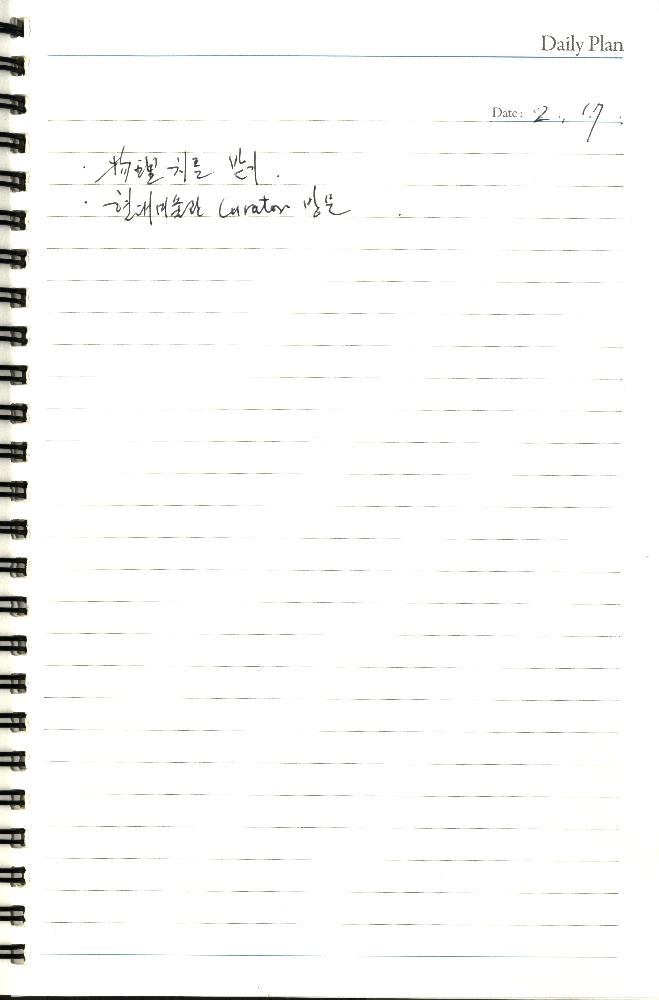 Daily Plan
Date: 2. 17.
· 物理 치료 받기.
· 현대미술관 Curator 방문.